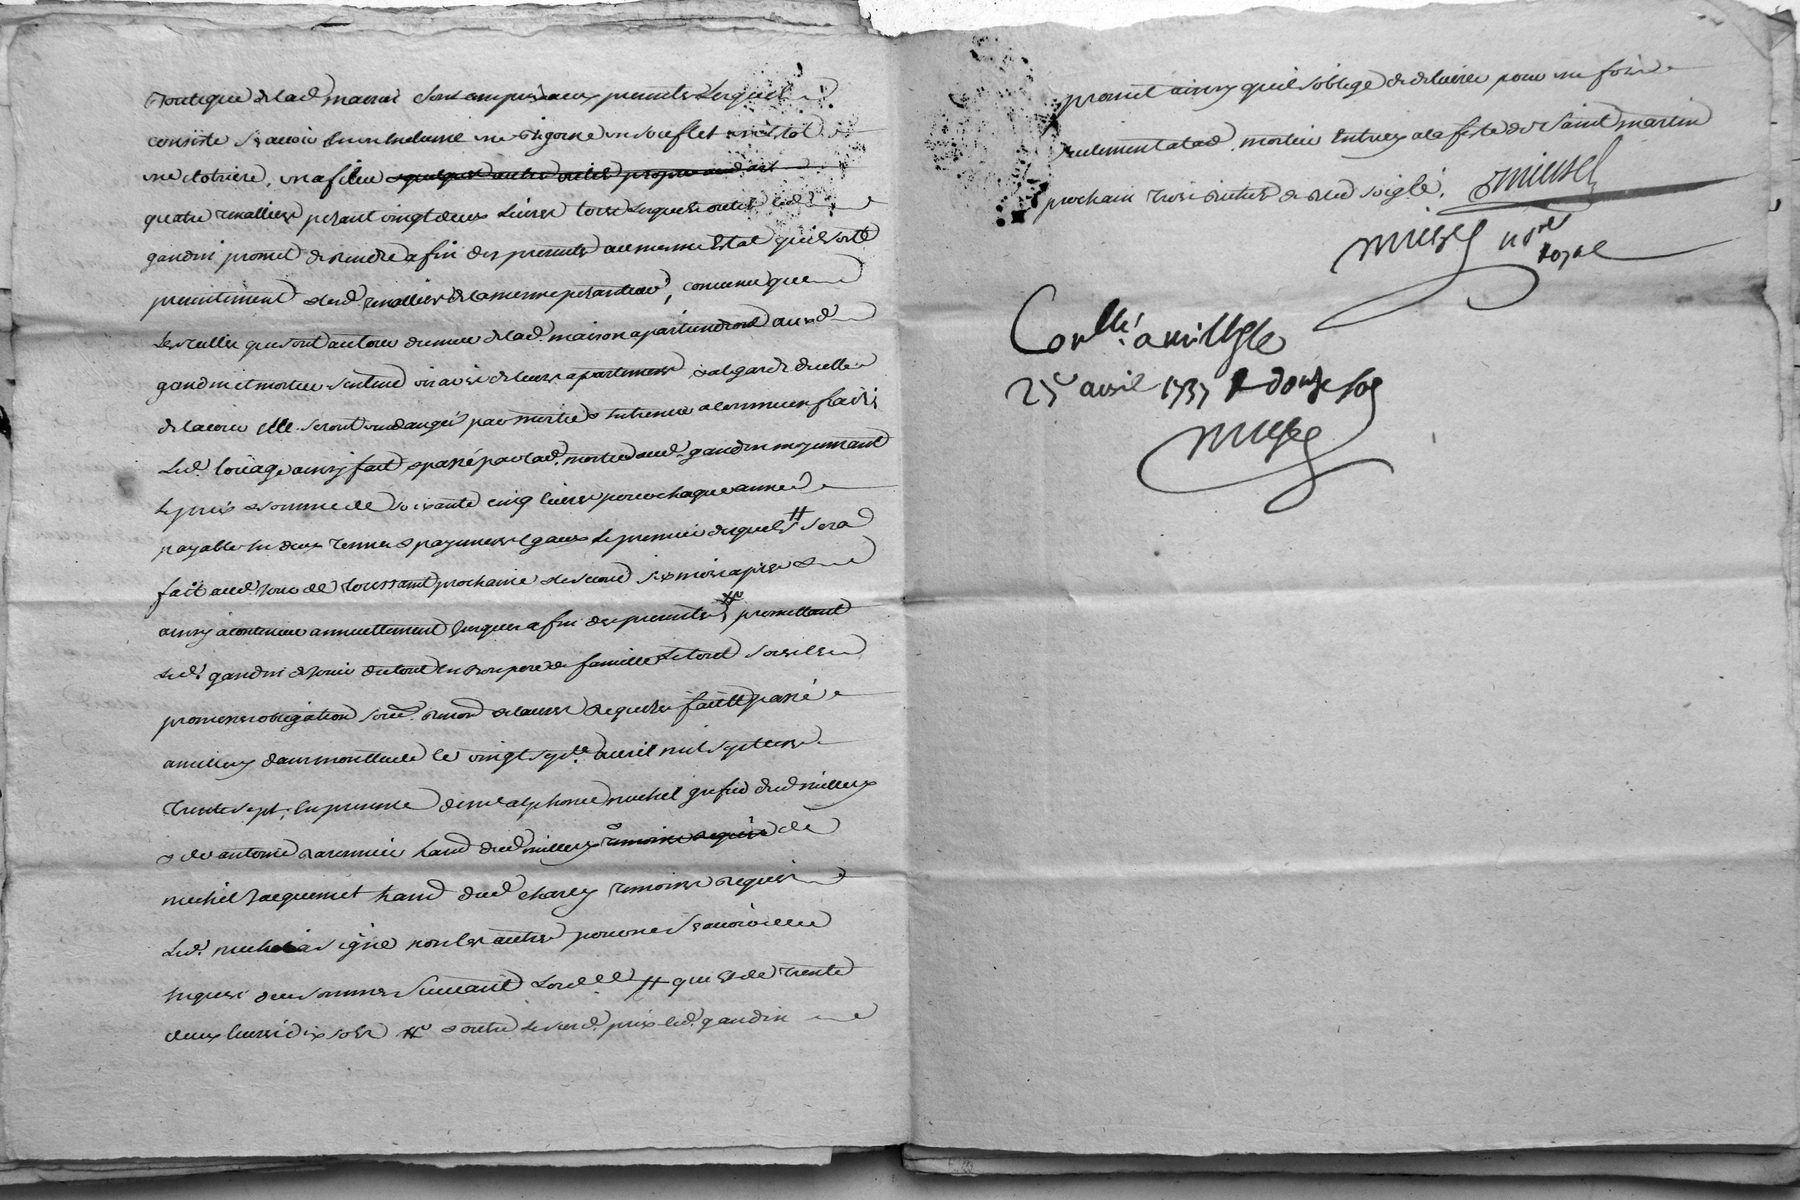 boutique de lad. maison sont compris aux presentes lesquels
consiste scavoir en un enclume une bigorne un souflet un etot
une clotriere, une filiere quelques autres outils propre aud art
quatre tenallies pesant vingt deux livres tous lesquels outils led.
gandin promet de rendre a fin des presentes au mesme estat qu'ils sont
presentement & led. tenallies de la mesme pesanteur, convenu que
les treilles qui sont autour du mur de lad. maison apartiendront aud.
gandin et mortier vis a vis de leurs apartemens, & a legard de celles
de la cour elle seront vendangés par mortier & entretenue a communs frais
Led. loüage ainsy fait & passé par lad. mortier aud. gandin moyennant
le prix & somme de soixante cinq livres pour chaque année
payable en deux termes & payemens egaux le premier desquels # sera
fait aud. jour de toussaint prochaine & le second six mois apres &
ainsy a continuer annuellement jusques a fin des presentes promettant
led. gandin de jouir du tout en bon pere de famille le tout sous les
promesses obligation soum. renon. & clauses requises fait & passé
a millery dans mon etude le vingt sept.e avril mil sept cens
trente sept, en presence de me alphonse michel grefier dud. millery
& de antoine hand dud. millery temoins requis de
michel jacquemet hand dud. charly temoins requis
Led. michel a signé non les autres pour ne scavoir de ce
enquis & sommes suivant lord.ce # qui est de trente
deux livres dix sols & outre le sus d. prix led. gandin
promet ainsy qu'il s'oblige de delivrer pour une fois
seulement a lad. mortier entrez a la feste de Saint martin
prochain trois bichets de bled soigle. Michel
Michel no.re
royal
Con.llé a millery le
25e avril 1737 R douze sols
Michel